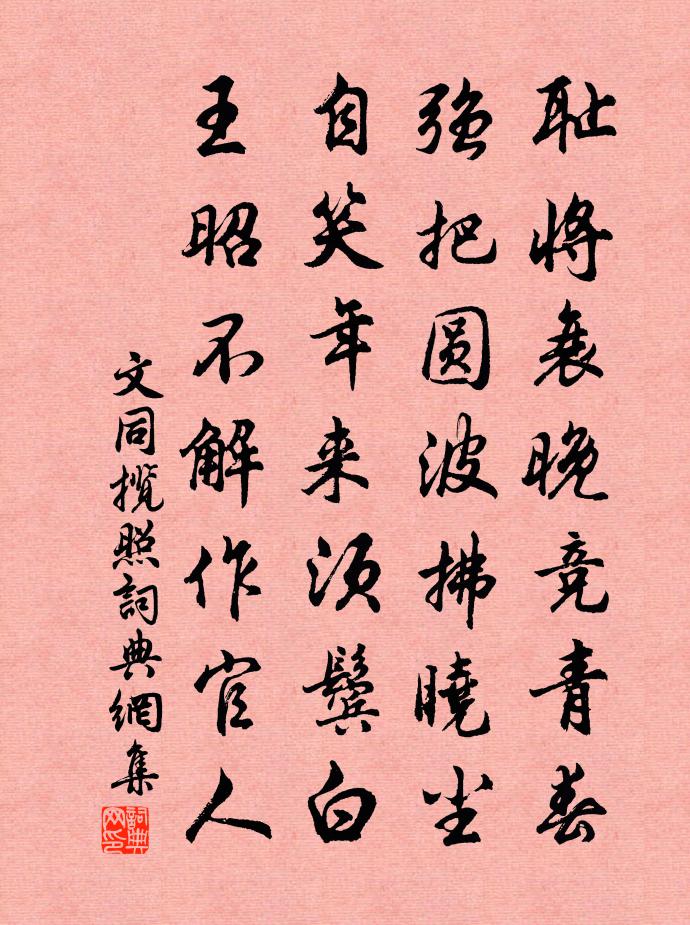 耻将衰晚竞青春
强把圆波拂晓尘
自笑年来须鬓白
王昭不解作官人
文同揽照詞典網集
詞典网印